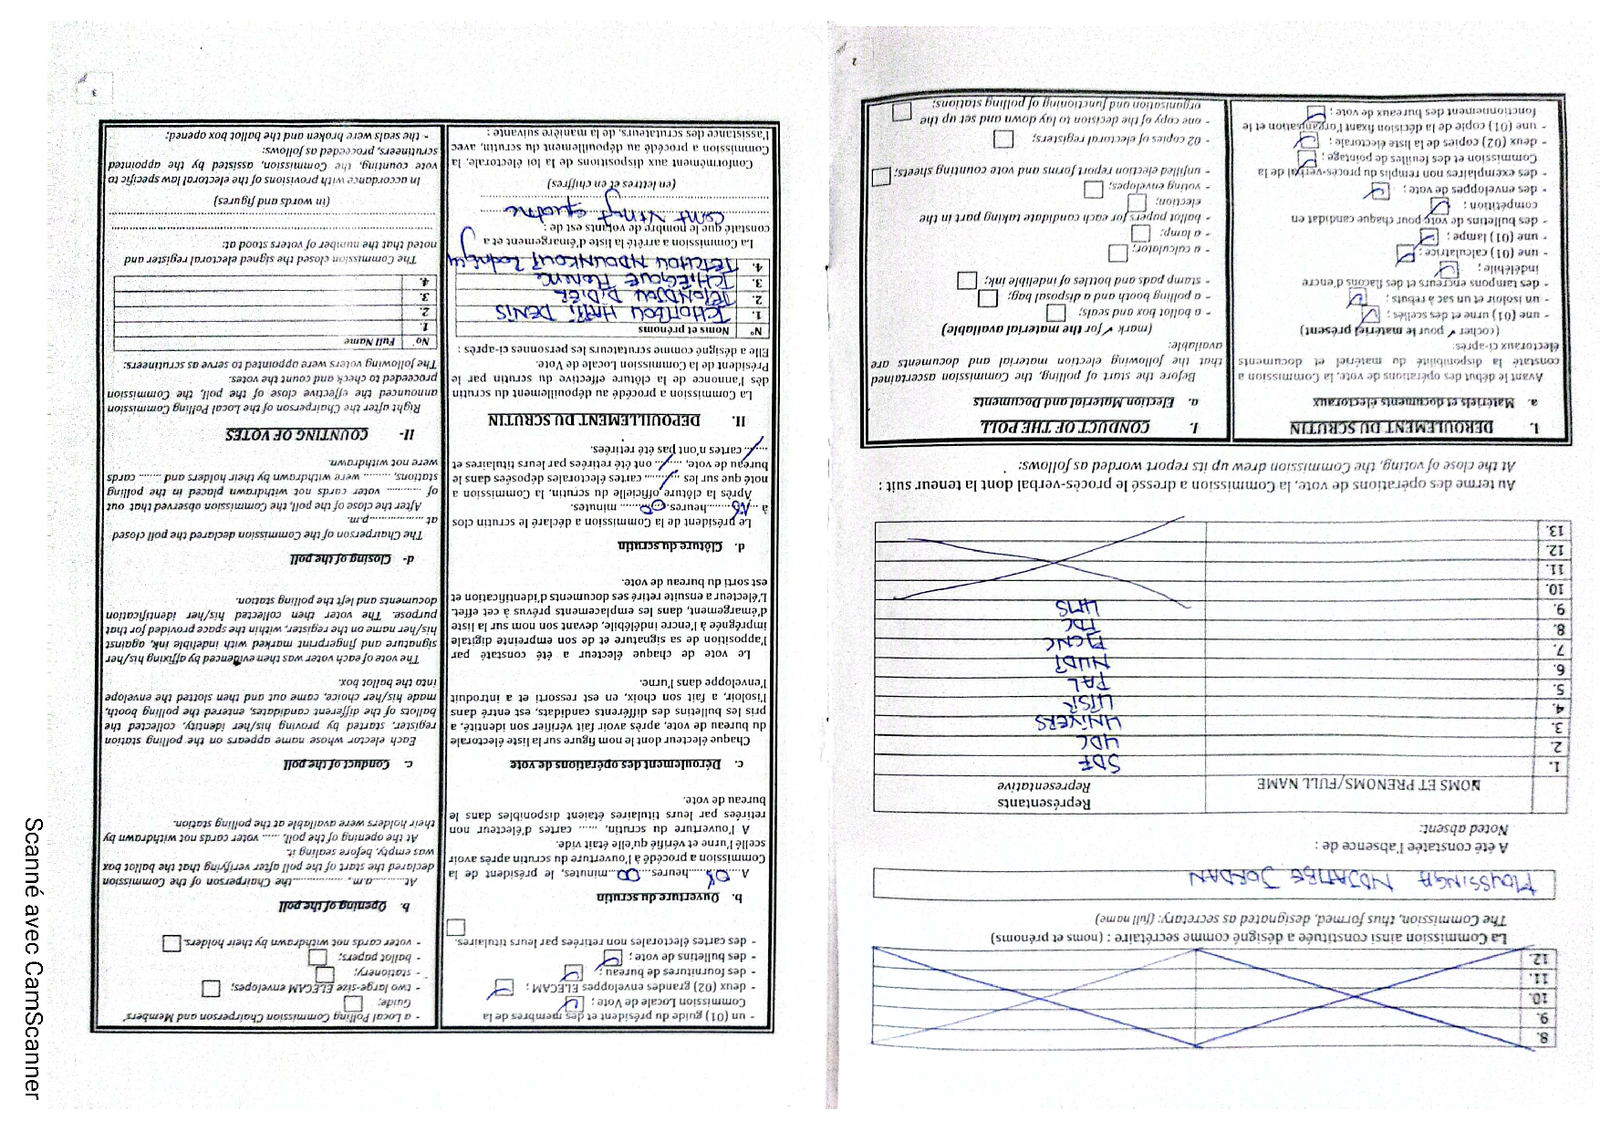 8.
9.
10.
11.
12.
La Commission ainsi constituée a désigné comme secrétaire : (noms et prénoms)
The Commission, thus formed, designated as secretary: (full name)
MOUSSINGA NDJATIBE JORDAN
A été constatée l'absence de :
Noted absent:
NOMS ET PRENOMS/FULL NAME
Représentants
Representative
1. SDF
2. UDC
3. UNIVERS
4.
5. PAL
6.
7. PCNC
8. FDC
9. UMS
10.
11.
12.
13.
Au terme des opérations de vote, la Commission a dressé le procès-verbal dont la teneur suit :
At the close of voting, the Commission drew up its report worded as follows:
I. DEROULEMENT DU SCRUTIN
a. Matériels et documents électoraux
Avant le début des opérations de vote, la Commission a
constaté la disponibilité du matériel et documents
électoraux ci-après:
(cocher ✓ pour le matériel présent)
- une (01) urne et des scellés ;
- un isoloir et un sac à rebuts ;
- des tampons encreurs et des flacons d'encre
indélébile ;
- une (01) calculatrice ;
- une (01) lampe ;
- des bulletins de vote pour chaque candidat en
compétition ;
- des enveloppes de vote ;
- des exemplaires non remplis du procès-verbal de la
Commission et des feuilles de pointage ;
- deux (02) copies de la liste électorale ;
- une (01) copie de la décision fixant l'organisation et le
fonctionnement des bureaux de vote ;
I. CONDUCT OF THE POLL
a. Election Material and Documents
Before the start of polling, the Commission ascertained
that the following election material and documents are
available:
(mark ✓ for the material available)
- a ballot box and seals;
- a polling booth and a disposal bag;
- stamp pads and bottles of indelible ink;
- a calculator;
- a lamp;
- ballot papers for each candidate taking part in the
election;
- voting envelopes;
- unfilled election report forms and vote counting sheets;
- 02 copies of electoral registers;
- one copy of the decision to lay down and set up the
organisation and functioning of polling stations;
2
- un (01) guide du président et des membres de la
Commission Locale de Vote ;
- deux (02) grandes enveloppes ELECAM ;
- des fournitures de bureau ;
- des bulletins de vote ;
- des cartes électorales non retirées par leurs titulaires.
b. Ouverture du scrutin
A 08 heures 00 minutes, le président de la
Commission a procédé à l'ouverture du scrutin après avoir
scellé l'urne et vérifié qu'elle était vide.
A l'ouverture du scrutin, ...... cartes d'électeur non
retirées par leurs titulaires étaient disponibles dans le
bureau de vote.
c. Déroulement des opérations de vote
Chaque électeur dont le nom figure sur la liste électorale
du bureau de vote, après avoir fait vérifier son identité, a
pris les bulletins des différents candidats, est entré dans
l'isoloir, a fait son choix, en est ressorti et a introduit
l'enveloppe dans l'urne.
Le vote de chaque électeur a été constaté par
l'apposition de sa signature et de son empreinte digitale
imprégnée à l'encre indélébile, devant son nom sur la liste
d'émargement, dans les emplacements prévus à cet effet.
L'électeur a ensuite retiré ses documents d'identification et
est sorti du bureau de vote.
d. Clôture du scrutin
Le président de la Commission a déclaré le scrutin clos
à 18 heures 00 minutes.
Après la clôture officielle du scrutin, la Commission a
noté que sur les ...... cartes électorales déposées dans le
bureau de vote, ...... ont été retirées par leurs titulaires et
...... cartes n'ont pas été retirées.
II. DEPOUILLEMENT DU SCRUTIN
La Commission a procédé au dépouillement du scrutin
dès l'annonce de la clôture effective du scrutin par le
Président de la Commission Locale de Vote.
Elle a désigné comme scrutateurs les personnes ci-après :
N° Noms et prénoms
1. TCHOMBOU HAPPI DENIS
2. TCHONDJOU DIDIER
3.
4. TETCHOU NDOUNKOUT Rodney
La Commission a arrêté la liste d'émargement et a
constaté que le nombre de votants est de :
cent vingt quatre
(en lettres et en chiffres)
Conformément aux dispositions de la loi électorale, la
Commission a procédé au dépouillement du scrutin, avec
l'assistance des scrutateurs, de la manière suivante :
- a Local Polling Commission Chairperson and Members'
Guide;
- two large-size ELECAM envelopes;
- stationery;
- ballot papers;
- voter cards not withdrawn by their holders.
b. Opening of the poll
At.........a.m., ............the Chairperson of the Commission
declared the start of the poll after verifying that the ballot box
was empty, before sealing it.
At the opening of the poll, ...... voter cards not withdrawn by
their holders were available at the polling station.
c. Conduct of the poll
Each elector whose name appears on the polling station
register, started by proving his/her identity, collected the
ballots of the different candidates, entered the polling booth,
made his/her choice, came out and then slotted the envelope
into the ballot box.
The vote of each voter was then evidenced by affixing his/her
signature and fingerprint marked with indelible ink, against
his/her name on the register, within the space provided for that
purpose. The voter then collected his/her identification
documents and left the polling station.
d- Closing of the poll
The Chairperson of the Commission declared the poll closed
at ...............p.m.
After the close of the poll, the Commission observed that out
of ........ voter cards not withdrawn placed in the polling
stations, ........ were withdrawn by their holders and ....... cards
were not withdrawn.
II- COUNTING OF VOTES
Right after the Chairperson of the Local Polling Commission
announced the effective close of the poll, the Commission
proceeded to check and count the votes.
The following voters were appointed to serve as scrutineers:
No Full Name
1.
2.
3.
4.
The Commission closed the signed electoral register and
noted that the number of voters stood at:
(in words and figures)
In accordance with provisions of the electoral law specific to
vote counting, the Commission, assisted by the appointed
scrutineers, proceeded as follows:
- the seals were broken and the ballot box opened;
3
Scanné avec CamScanner